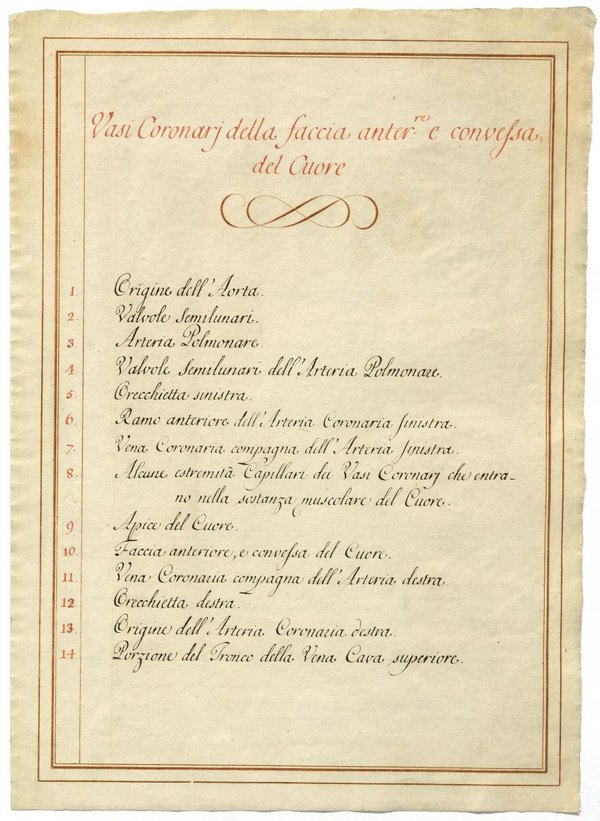 Vasi Coronarj della faccia anter.res e convessa
del Cuore
1. Origine dell'Aorta.
2. Valvole Semilunari.
3. Arteria Polmonare.
4. Valvole Semilunari dell'Arteria Polmonare.
5. Orecchietta sinistra.
6. Ramo anteriore dell'Arteria Coronaria sinistra.
7. Vena Coronaria compagna dell'Arteria sinistra.
8. Alcune estremità Capillari dei Vasi Coronarj che entra-
no nella sostanza muscolare del Cuore.
9. Apice del Cuore.
10. Faccia anteriore, e convessa del Cuore.
11. Vena Coronaria compagna dell'Arteria destra.
12. Orecchietta destra.
13. Origine dell'Arteria Coronaria destra.
14. Porzione del Tronco della Vena Cava superiore.